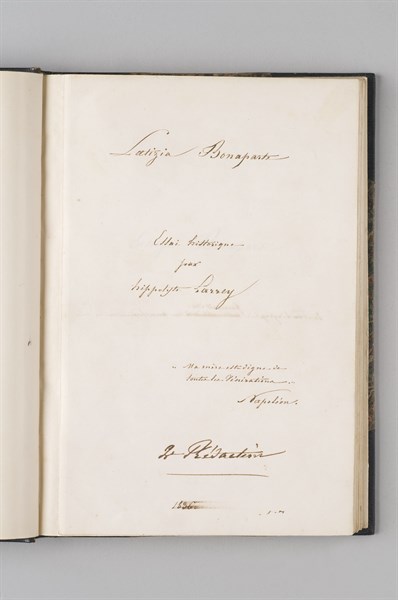 Lœtizia Bonaparte
Essai historique
par
hippolyte Larrey
« Ma mère est digne de
toutes les Vénérations. »
Napoléon.
2e Rédaction